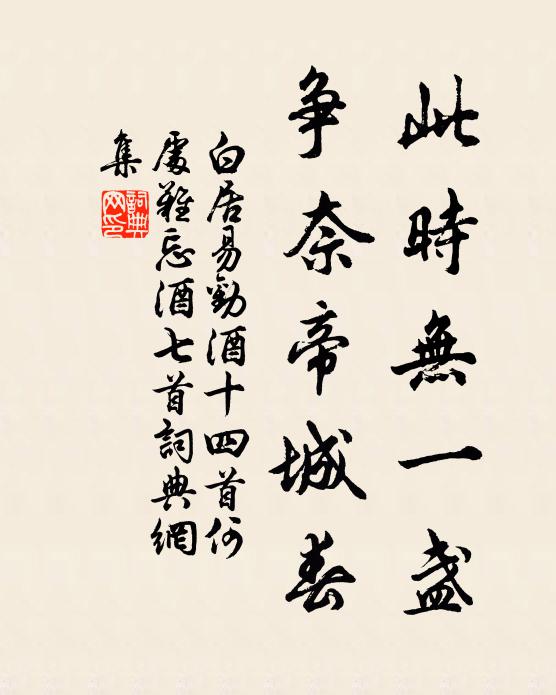 此時無一盏
争奈帝城春
白居易勸酒十四首何
處難忘酒七首詞典網
集
詞典
网印